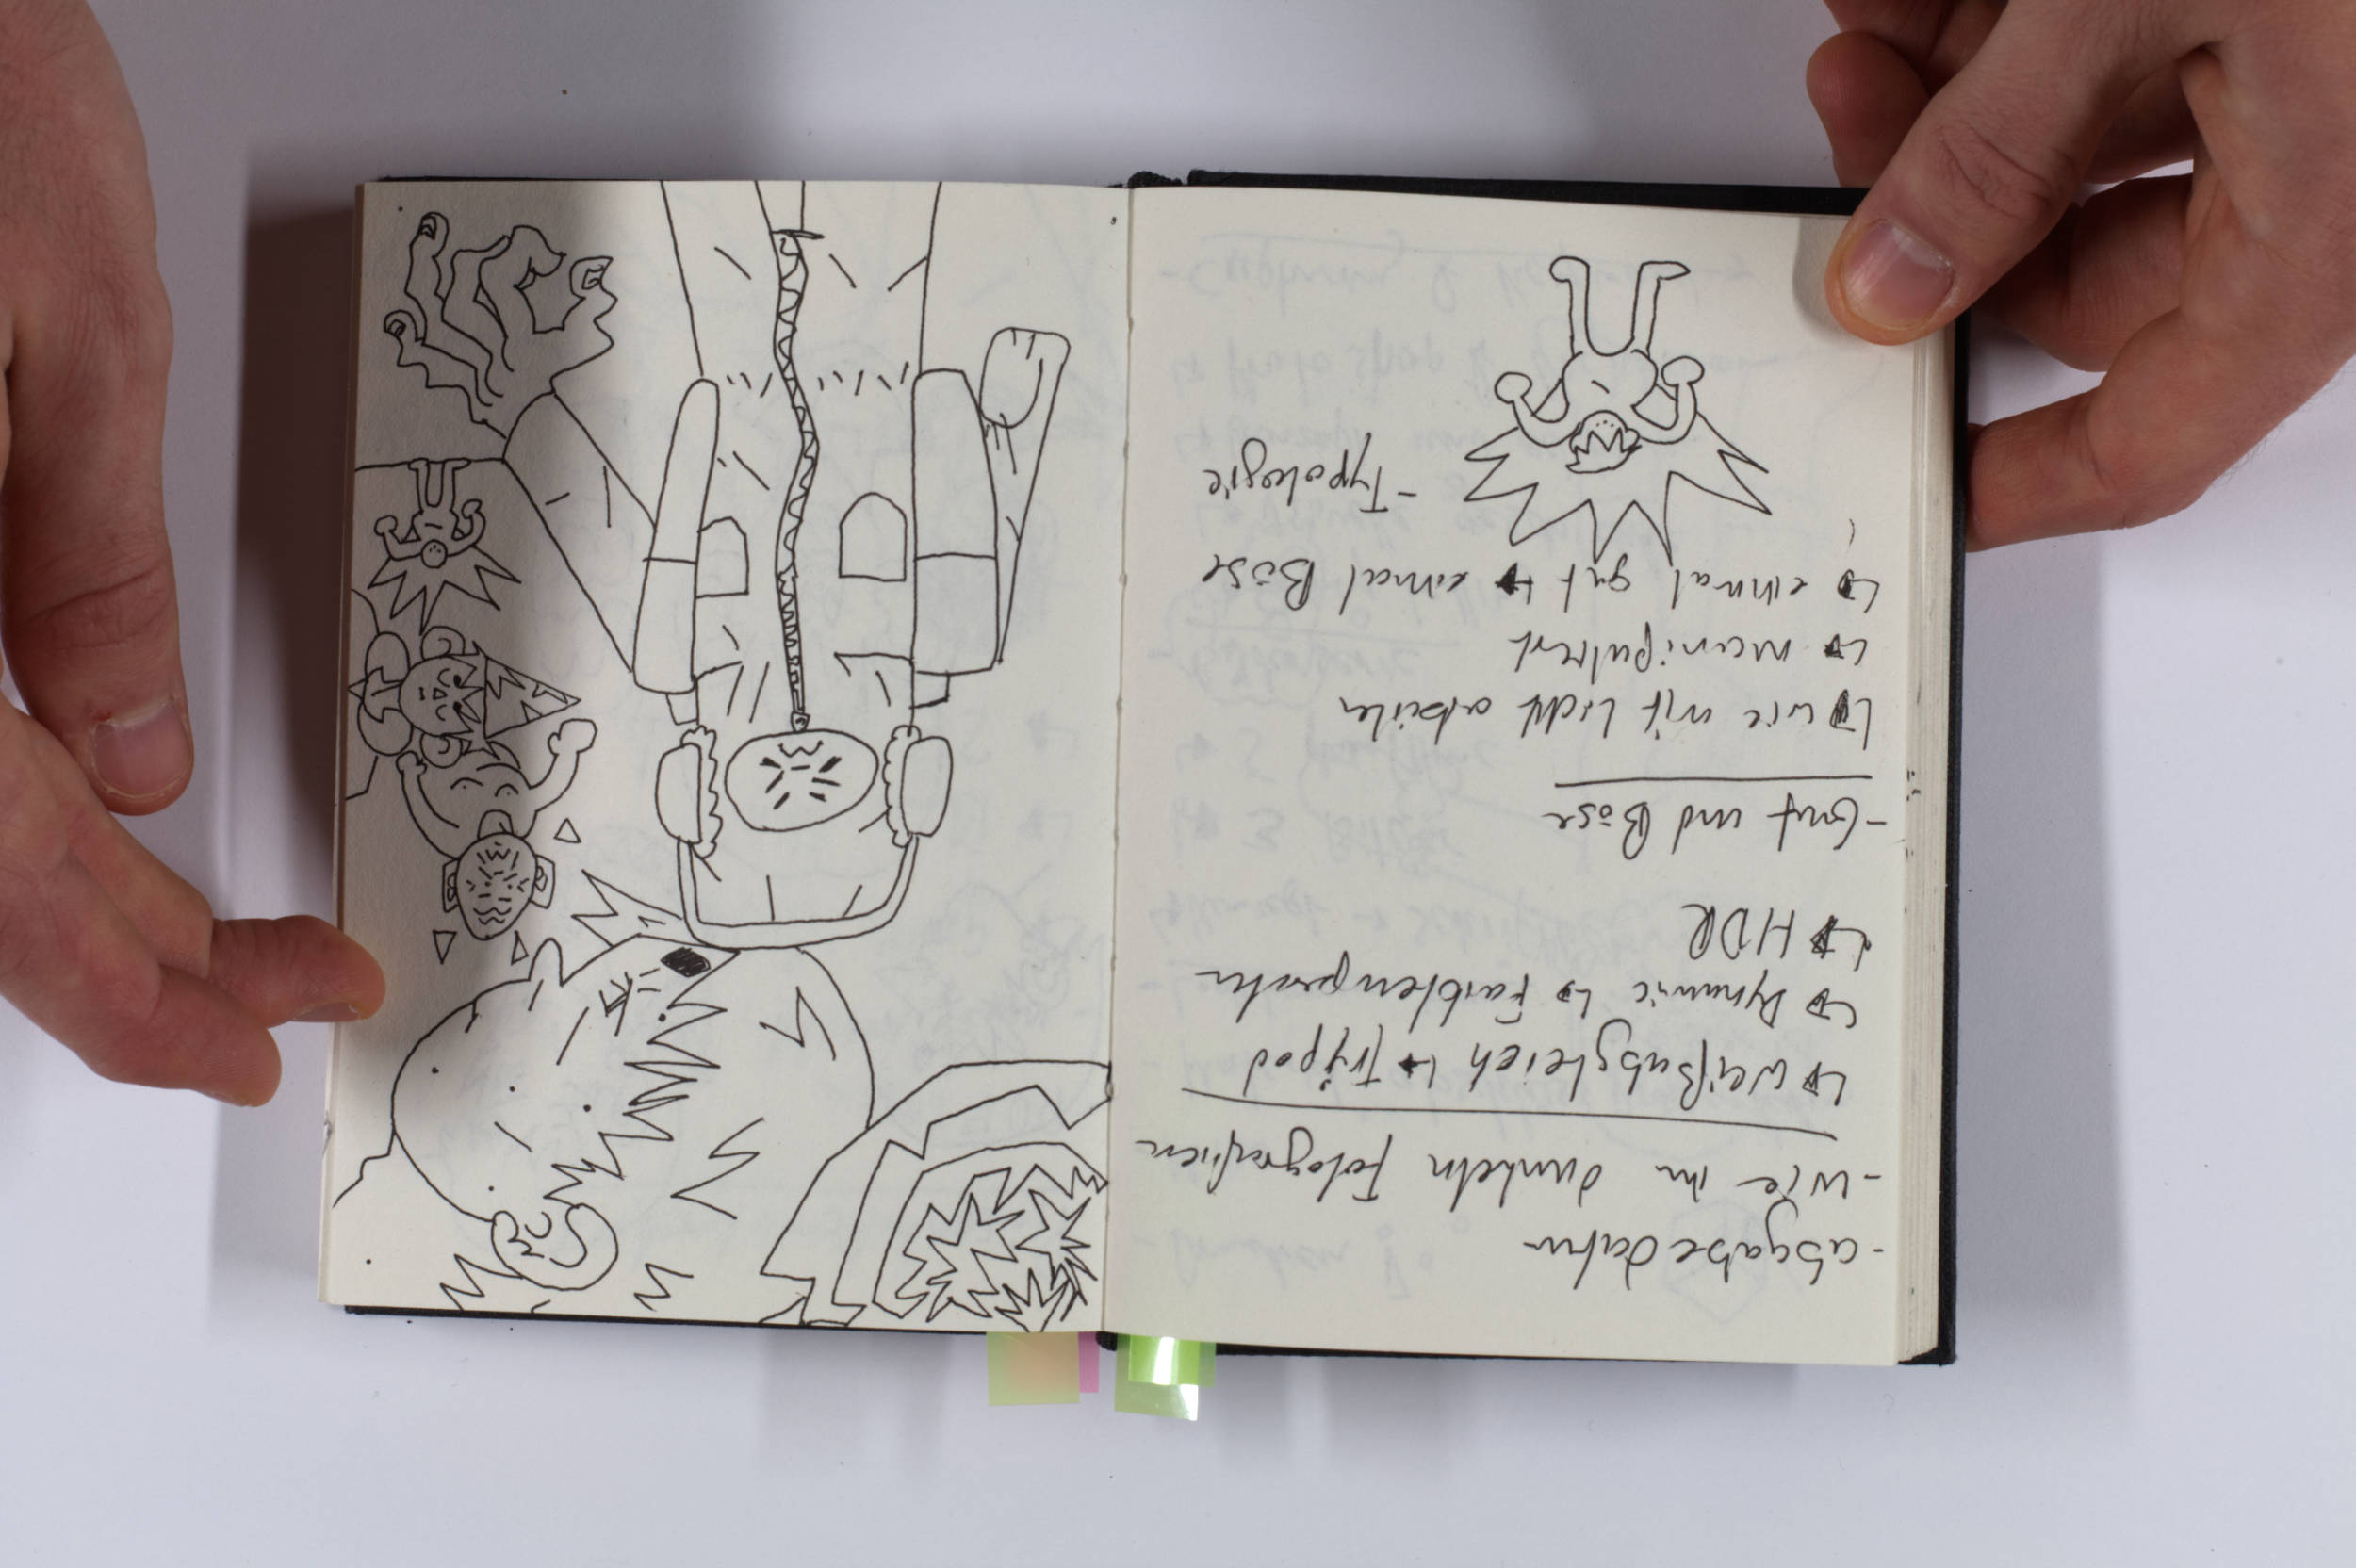 - abgabe daten
- wie im dunkeln Fotografieren
↳ Weißabgleich ↳ Trypod
↳ Dynamic ↳ Farbtemperatur
↳ HDR
- Gut und Böse
↳ wie mit Licht arbeiten
↳ manipuliert
↳ einmal gut ↳ einmal Böse
- Typologie